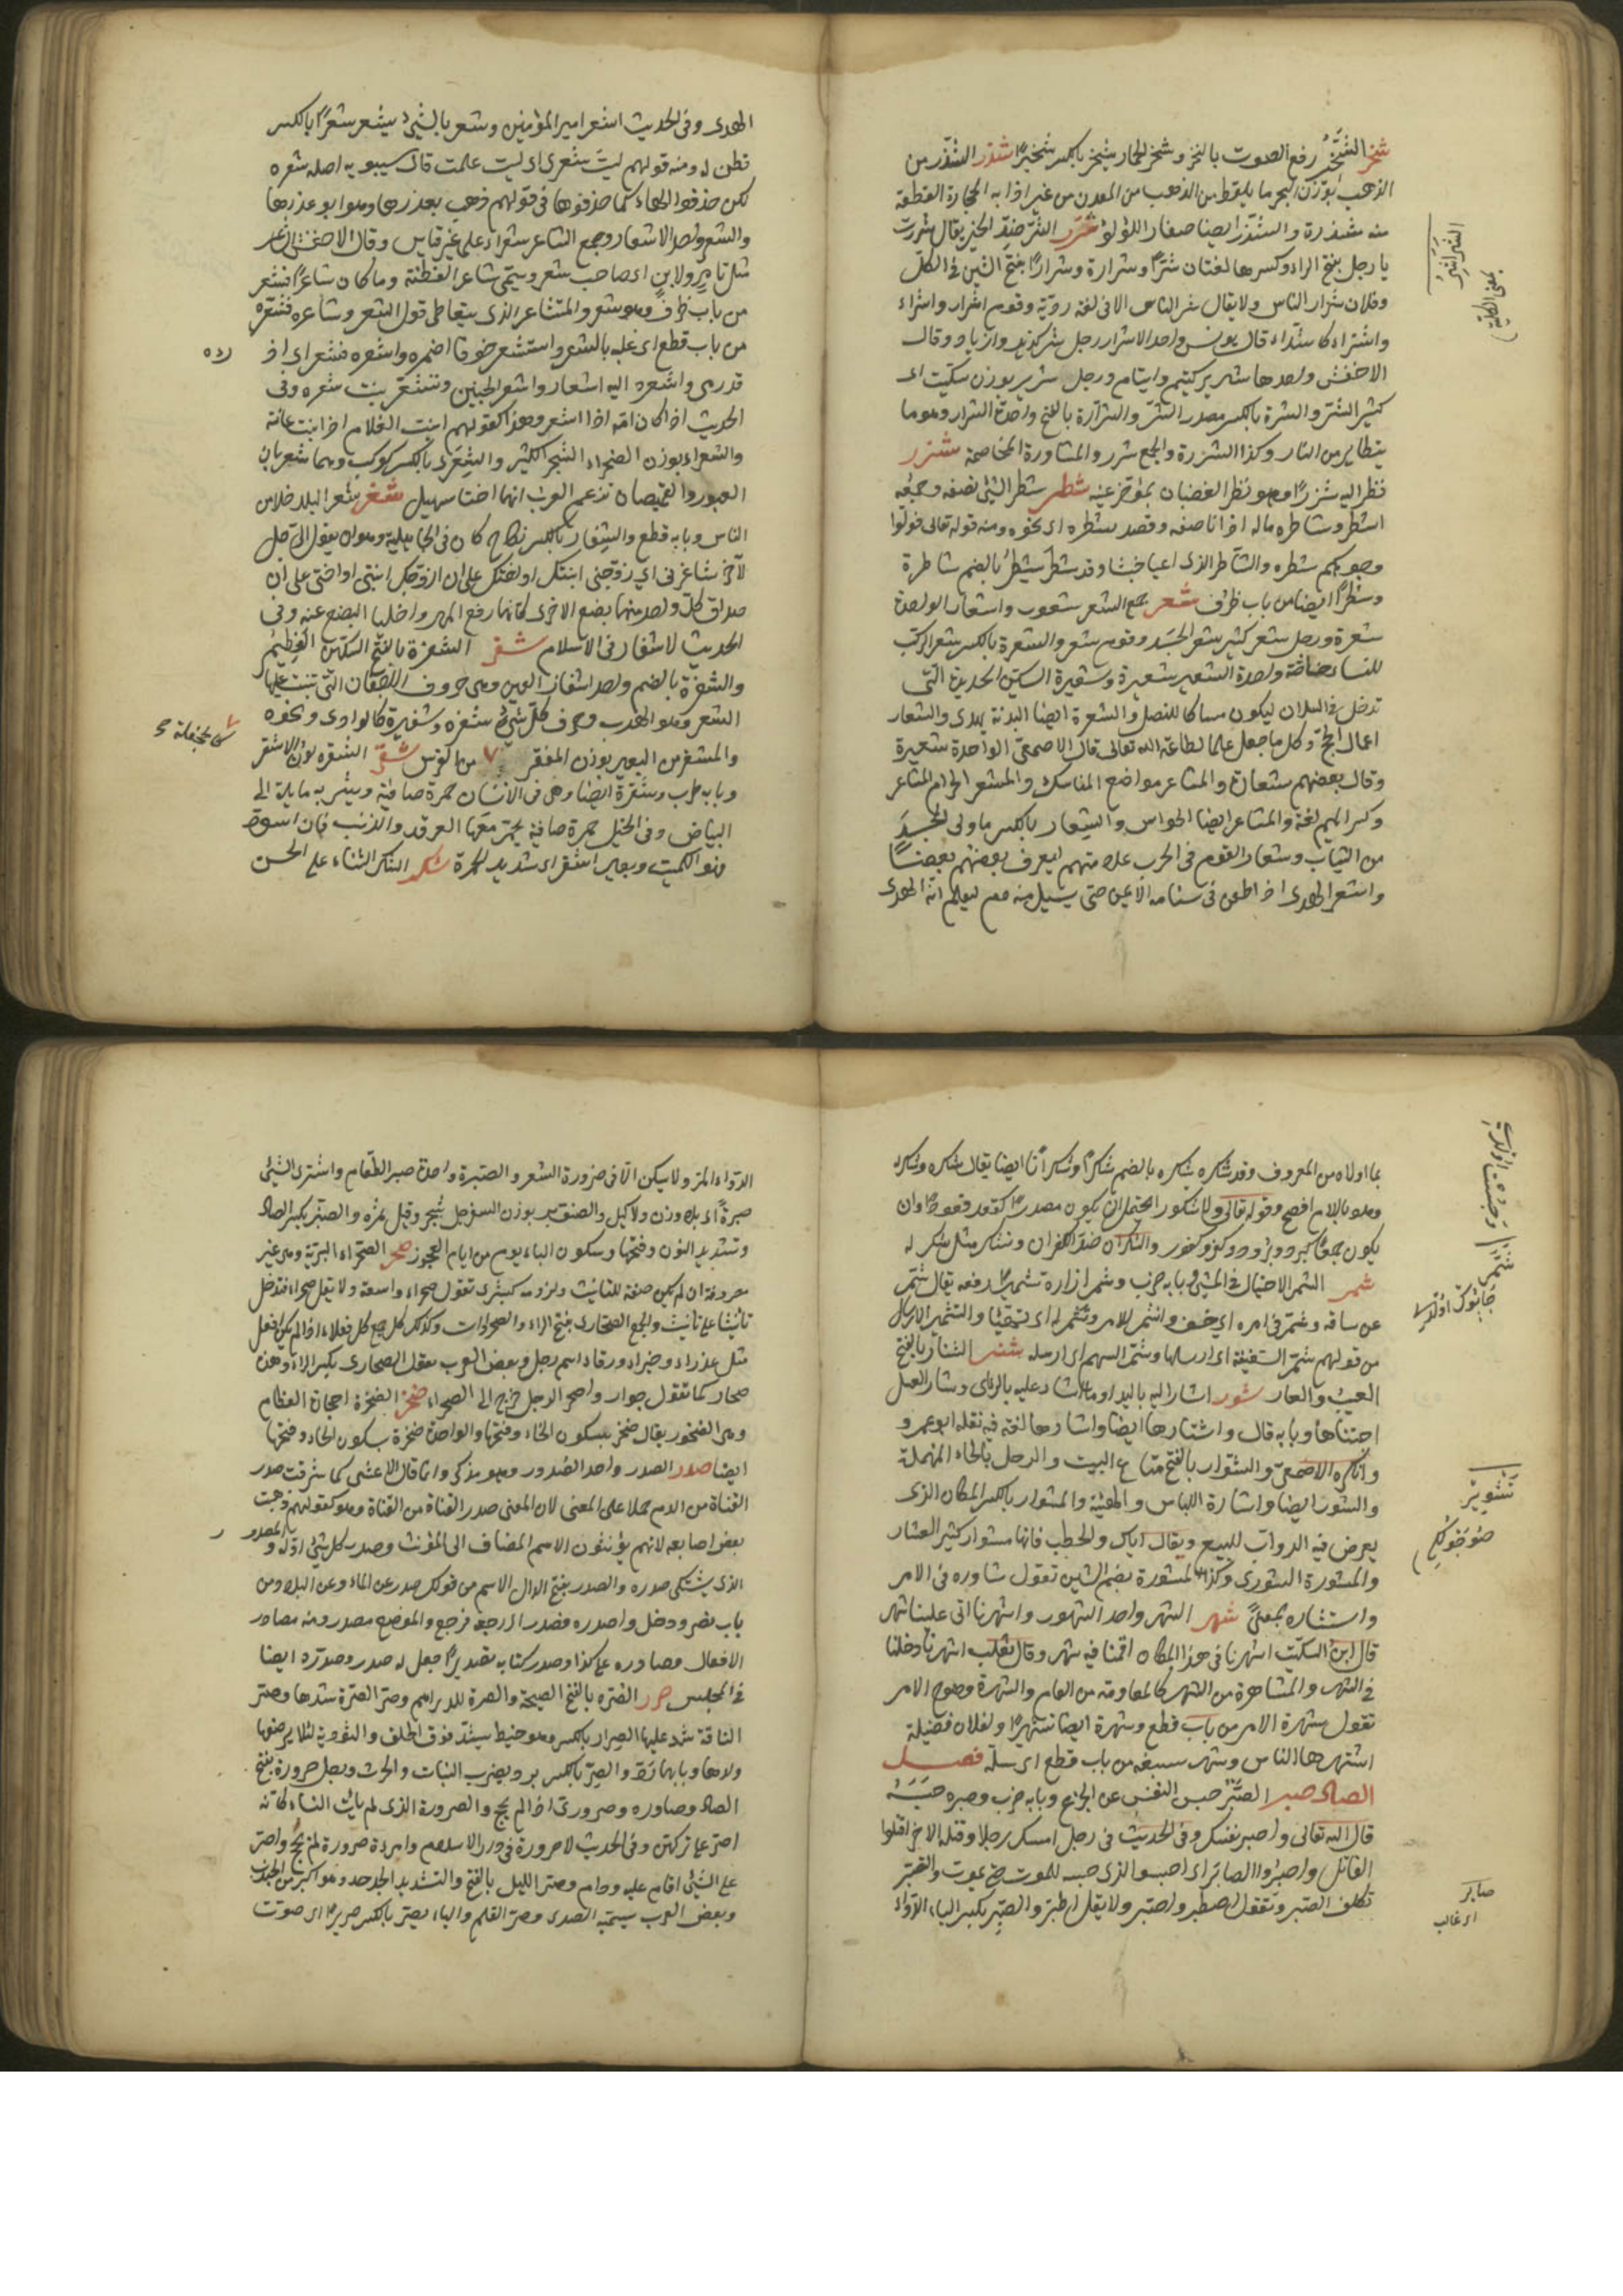 شخر الشخر رفع الصوت بالنخر وشخر الحمار يشخر بالكسر شخيرا شذر الشذر من
الذهب بوزن البحر ما يلقط من الذهب من المعدن من غير اذابه الحجارة القطعة
منه شذرة والشذر ايضا صغار اللؤلؤ شرر الشر ضد الخير يقال شررت
يا رجل بفتح الراء وكسرها لغتان شرا وشرارة وشرارا بفتح الشين فى الكل
وفلان شرار الناس ولا يقال شر الناس الا فى لغة ردية وقوم اشرار واشراء
واشتراء كاشداء قال يونس واحد الاشرار رجل شر كزند وازناد وقال
الاخفش واحدها شرير كيتيم وايتام ورجل شرير بوزن سكيت اى
كثير الشر والشرة بالكسر مصدر الشر والشرارة بالفتح واحدة الشرار وهو ما
يتطاير من النار وكذا الشررة والجمع شرر والمشاورة المخاصمة شزر
نظر اليه شزرا وهو نظر الغضبان بمؤخر عينه شطر شطر الشئ نصفه وجمعه
اشطر وشاطره ماله اذا ناصفه وقصد شطره اى نحوه ومنه قوله تعالى فولوا
وجوهكم شطره والشاطر الذى اعيا خبثا وقد شطر يشطر بالضم شاطرة
وشطرا ايضا من باب ظرف شعر جمع الشعر شعور واشعار الواحدة
شعرة ورجل شعر كثير شعر الجسد وقوم شعر والشعرة بالكسر شعر الركب
للنساء خاصة واحدة الشعير شعيرة وشعيرة السكين الحديدة التى
تدخل فى السلان ليكون مساكا للنصل والشعرة ايضا البدنة يهدى والشعار
اعمال الحج وكل ما جعل علما لطاعة الله تعالى قال الاصمعى الواحدة شعيرة
وقال بعضهم شعارة والمشاعر مواضع المناسك والمشعر الحرام المشاعر
وكسر الميم لغة والمشاعر ايضا الحواس والشعار بالكسر ما ولى الجسد
من الثياب وشعار القوم فى الحرب علامتهم ليعرف بعضهم بعضا
واشعر الهدى اذا طعن فى سنامه الايمن حتى يسيل منه دم ليعلم انه الهدى
الهدى وفى الحديث اشعر امير المؤمنين وشعر بالشئ يشعر شعرا بالكسر
فطن له ومنه قولهم ليت شعرى اى ليت علمت قال سيبويه اصله شعره
لكن حذفوا الهاء كما حذفوها فى قولهم ذهب بعذرها وهو ابو عذرها
والشعر واحد الاشعار وجمع الشاعر شعراء على غير قياس وقال الاخفش الشاعر
مثل تامر ولابن اى صاحب شعر وسمى شاعرا لفطنته وما كان شاعرا فشعر
من باب ظرف وهو يشعر والمتشاعر الذى يتعاطى قول الشعر وشاعره فشعره
من باب قطع اى غلبه بالشعر واستشعر خوفا اضمره واشعره فشعر اى اد
راه
قدرى واشعره اليه اشعار واشعر الجنين وتشعر نبت شعره وفى
الحديث اذا كان امه اذا اشعر وهذا كقولهم انبت الغلام اذا نبت عانته
والشعراء بوزن الصحراء الشجر الكثير والشعرى بالكسر كوكب وهما شعريان
العبور والغميصان تزعم العرب انهما اختا سهيل شغر شغر البلد خلا من
الناس وبابه قطع والشغار بالكسر نكاح كان فى الجاهلية وهو ان يقول الرجل
لآخر شاغرنى اى زوجنى ابنتك او اختك على ان ازوجك ابنتى او اختى على ان
صداق كل واحد منهما بضع الاخرى كانهما رفعا المهر واخليا البضع عنه وفى
الحديث لا شغار فى الاسلام شفر الشفرة بالفتح السكين العظيم
والشفرة بالضم واحد اشفار العين وهى حروف الاجفان التى تنبت عليها
الشعر وهو الهدب وحرف كل شئ شفره وشفيره كالوادى ونحوه
والمشفر من البعير بوزن المغفر ٧ من الفرس شقر الشقرة لون الاشقر
كالجحفلة صح
وبابه طرب وشقرة ايضا وهى فى الانسان حمرة صافية وبشرته مايلة الى
البياض وفى الخيل حمرة صافية يحمر معها العرف والذنب فان اسود
فهو الكميت وبعير اشقر اى شديد الحمرة شكر الشكر الثناء على المحسن
بما اولاه من المعروف وقد شكره يشكره بالضم شكرا وشكرانا ايضا يقال شكره وشكر له
وهو باللام افصح وقوله تعالى ولا شكورا يحتمل ان يكون مصدرا كقعد قعودا وان
يكون جمعا كبرد وبرود وكفر وكفور والشكران ضد الكفران وتشكر مثل شكر له
شمر الشمر الاختيال فى المشى وبابه ضرب وشمر ازاره تشميرا رفعه يقال شمر
عن ساقه وشمر فى امره اى خف وانشمر للامر وتشمر له اى تهيا والتشمير الارسال
من قولهم شمر السفينة اى ارسلها وشمر السهم اى ارسله شنر الشنار بالفتح
العيب والعار شور اشار اليه باليد اومأ واشار عليه بالراى وشار العسل
اجتناها وبابه قال واشتارها ايضا واشارها لغة فيه نقله ابو عمرو
وانكره الاصمعى والشوار بالفتح متاع البيت والرحل بالحاء المهملة
والشور ايضا واشارة اللباس والهيئة والمشوار بالكسر المكان الذى
يعرض فيه الدواب للبيع ويقال اياك والخطب فانها مشوار كثير العثار
والمشورة الشورى وكذا المشورة بضم الشين تقول شاوره فى الامر
واستشاره بمعنى شهر الشهر واحد الشهور واشهرنا اتى علينا شهر
قال ابن السكيت اشهرنا فى هذا المكان اقمنا فيه شهر وقال ثعلب اشهرنا دخلنا
فى الشهر والمشاهرة من الشهر كالمعاومة من العام والشهرة وضوح الامر
تقول شهرة الامر من باب قطع وشهرة ايضا تشهيرا ولفلان فضيلة
اشتهرها الناس وشهر سيفه من باب قطع اى سله فصل
الصاد صبر الصبر حبس النفس عن الجزع وبابه ضرب وصبره حبسه
قال الله تعالى واصبر نفسك وفى الحديث فى رجل امسك رجلا وقتله الاخر اقتلوا
القاتل واصبروا الصابر اى احبسوا الذى حبسه للموت حتى يموت والتصبر
تكلف الصبر وتقول اصطبر واصبر ولا يقل اطبر والصبر بكسر الباء الدواء
صابر
اى غالب
الدواء المر ولا يسكن الا فى ضرورة الشعر والصبرة واحدة صبر الطعام واشترى الشئ
صبرة اى بلا وزن ولا كيل والصنوبر بوزن السفرجل شجر وقيل ثمره والصنبر بكسر الصاد
وتشديد النون وفتحها وسكون الباء يوم من ايام العجوز صحر الصحراء البرية وهى غير
مصروفة ان لم يكن صفة للتانيث ولزومه كبشرى تقول صحراء واسعة ولا يقل صحراءة فتدخل
تأنيثا على تأنيث والجمع الصحارى بفتح الراء والصحراوات وكذلك كل جمع كل فعلاء اذا لم يكن افعل
مثل عذراء وخبراء ورقاء اسم رجل وبعض العرب يقول الصحارى بكسر الراء وهذه
صحار كما تقول جوار واصحر الرجل خرج الى الصحراء صخر الصخرة الحجارة العظام
وهى الصخور يقال صخر بسكون الخاء وفتحها والواحدة صخرة بسكون الخاء وفتحها
ايضا صدر الصدر واحد الصدور وهو مذكر وانما قال الاعشى كما شرقت صدر
القناة من الدم حملا على المعنى لان المعنى صدر القناة من القناة وهو كقولهم ذهبت
بعض اصابعه لانهم يؤنثون الاسم المضاف الى المؤنث وصدر كل شئ اوله والمصدر
الذى يشتكى صدره والصدر بفتح الدال الاسم من قولك صدر عن الماء وعن البلاد ومن
باب نصر ودخل واصدره فصدر اى رجعه فرجع والموضع مصدر ومنه مصادر
الافعال وصادره على كذا وصدر كتابه تصديرا جعل له صدر وصدره ايضا
فى المجلس صرر الصرة بالفتح الصيحة والصرة للدراهم وصر الصرة شدها وصر
الناقة شد عليها الصرار بالكسر وهو خيط يشد فوق الخلف والتودية لئلا يرضعها
ولدها وبابهما رد والصر بالكسر برد يضرب النبات والحرث ورجل صرورة بفتح
الصاد وصاروره وصرورى اذا لم يحج والصرورة الذى لم يات النساء كانه
اصر على تركهن وفى الحديث لا صرورة فى الاسلام وامرءة صرورة لم تحج واصر
على الشئ اقام عليه ودام وصر الليل بالفتح والتشديد الجدجد وهو اكبر من الجندب
وبعض العرب يسميه الصدى وصر القلم والباب يصر بالكسر صريرا اى صوت